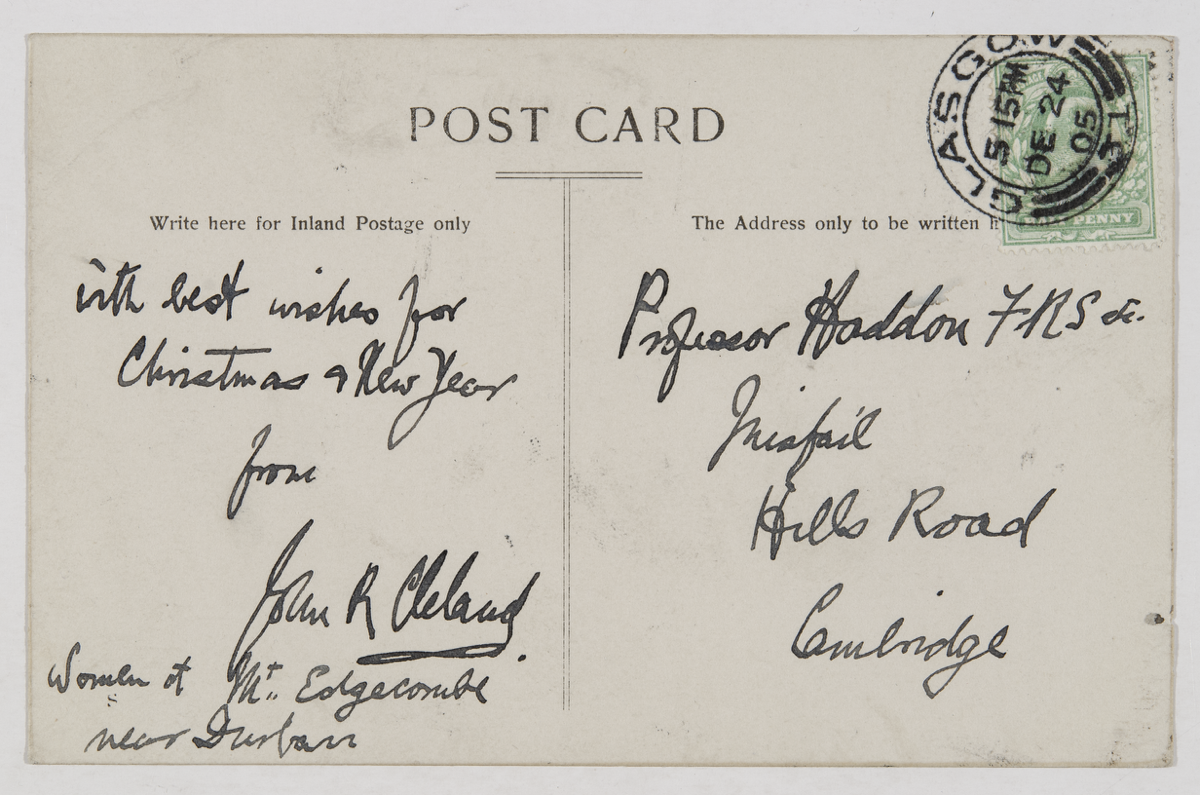 POST CARD
Write here for Inland Postage only
The Address only to be written h
GLASGOW
5 15 PM
DE 24
05
PENNY
with best wishes for
Christmas & New Year
from
John R Cleland
Women at Mt. Edgecombe
near Durban
Professor Haddon F.R.S &c.
Inisfail
Hills Road
Cambridge